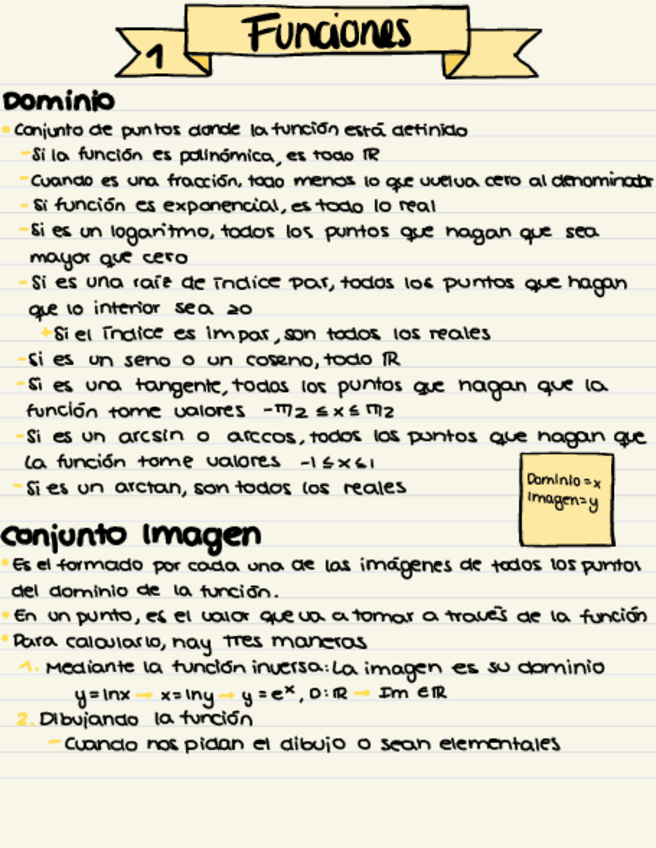 1
Funciones
Dominio
• Conjunto de puntos donde la función está definido
- Si la función es polinómica, es todo ℝ
- Cuando es una fracción, todo menos lo que vuelva cero al denominador
- Si función es exponencial, es todo lo real
- Si es un logaritmo, todos los puntos que hagan que sea
mayor que cero
- Si es una raíz de índice par, todos los puntos que hagan
que lo interior sea ≥0
+ Si el índice es impar, son todos los reales
- Si es un seno o un coseno, todo ℝ
- Si es una tangente, todos los puntos que hagan que la
función tome valores -π/2 ≤ x ≤ π/2
- Si es un arcsin o arccos, todos los puntos que hagan que
la función tome valores -1 ≤ x ≤ 1
- Si es un arctan, son todos los reales
Dominio = x
Imagen = y
Conjunto Imagen
• Es el formado por cada una de las imágenes de todos los puntos
del dominio de la función.
• En un punto, es el valor que va a tomar a través de la función
• Para calcularlo, hay tres maneras
1. Mediante la función inversa: La imagen es su dominio
y = lnx → x = lny → y = eˣ, D: ℝ → Im ∈ ℝ
2. Dibujando la función
- Cuando nos pidan el dibujo o sean elementales